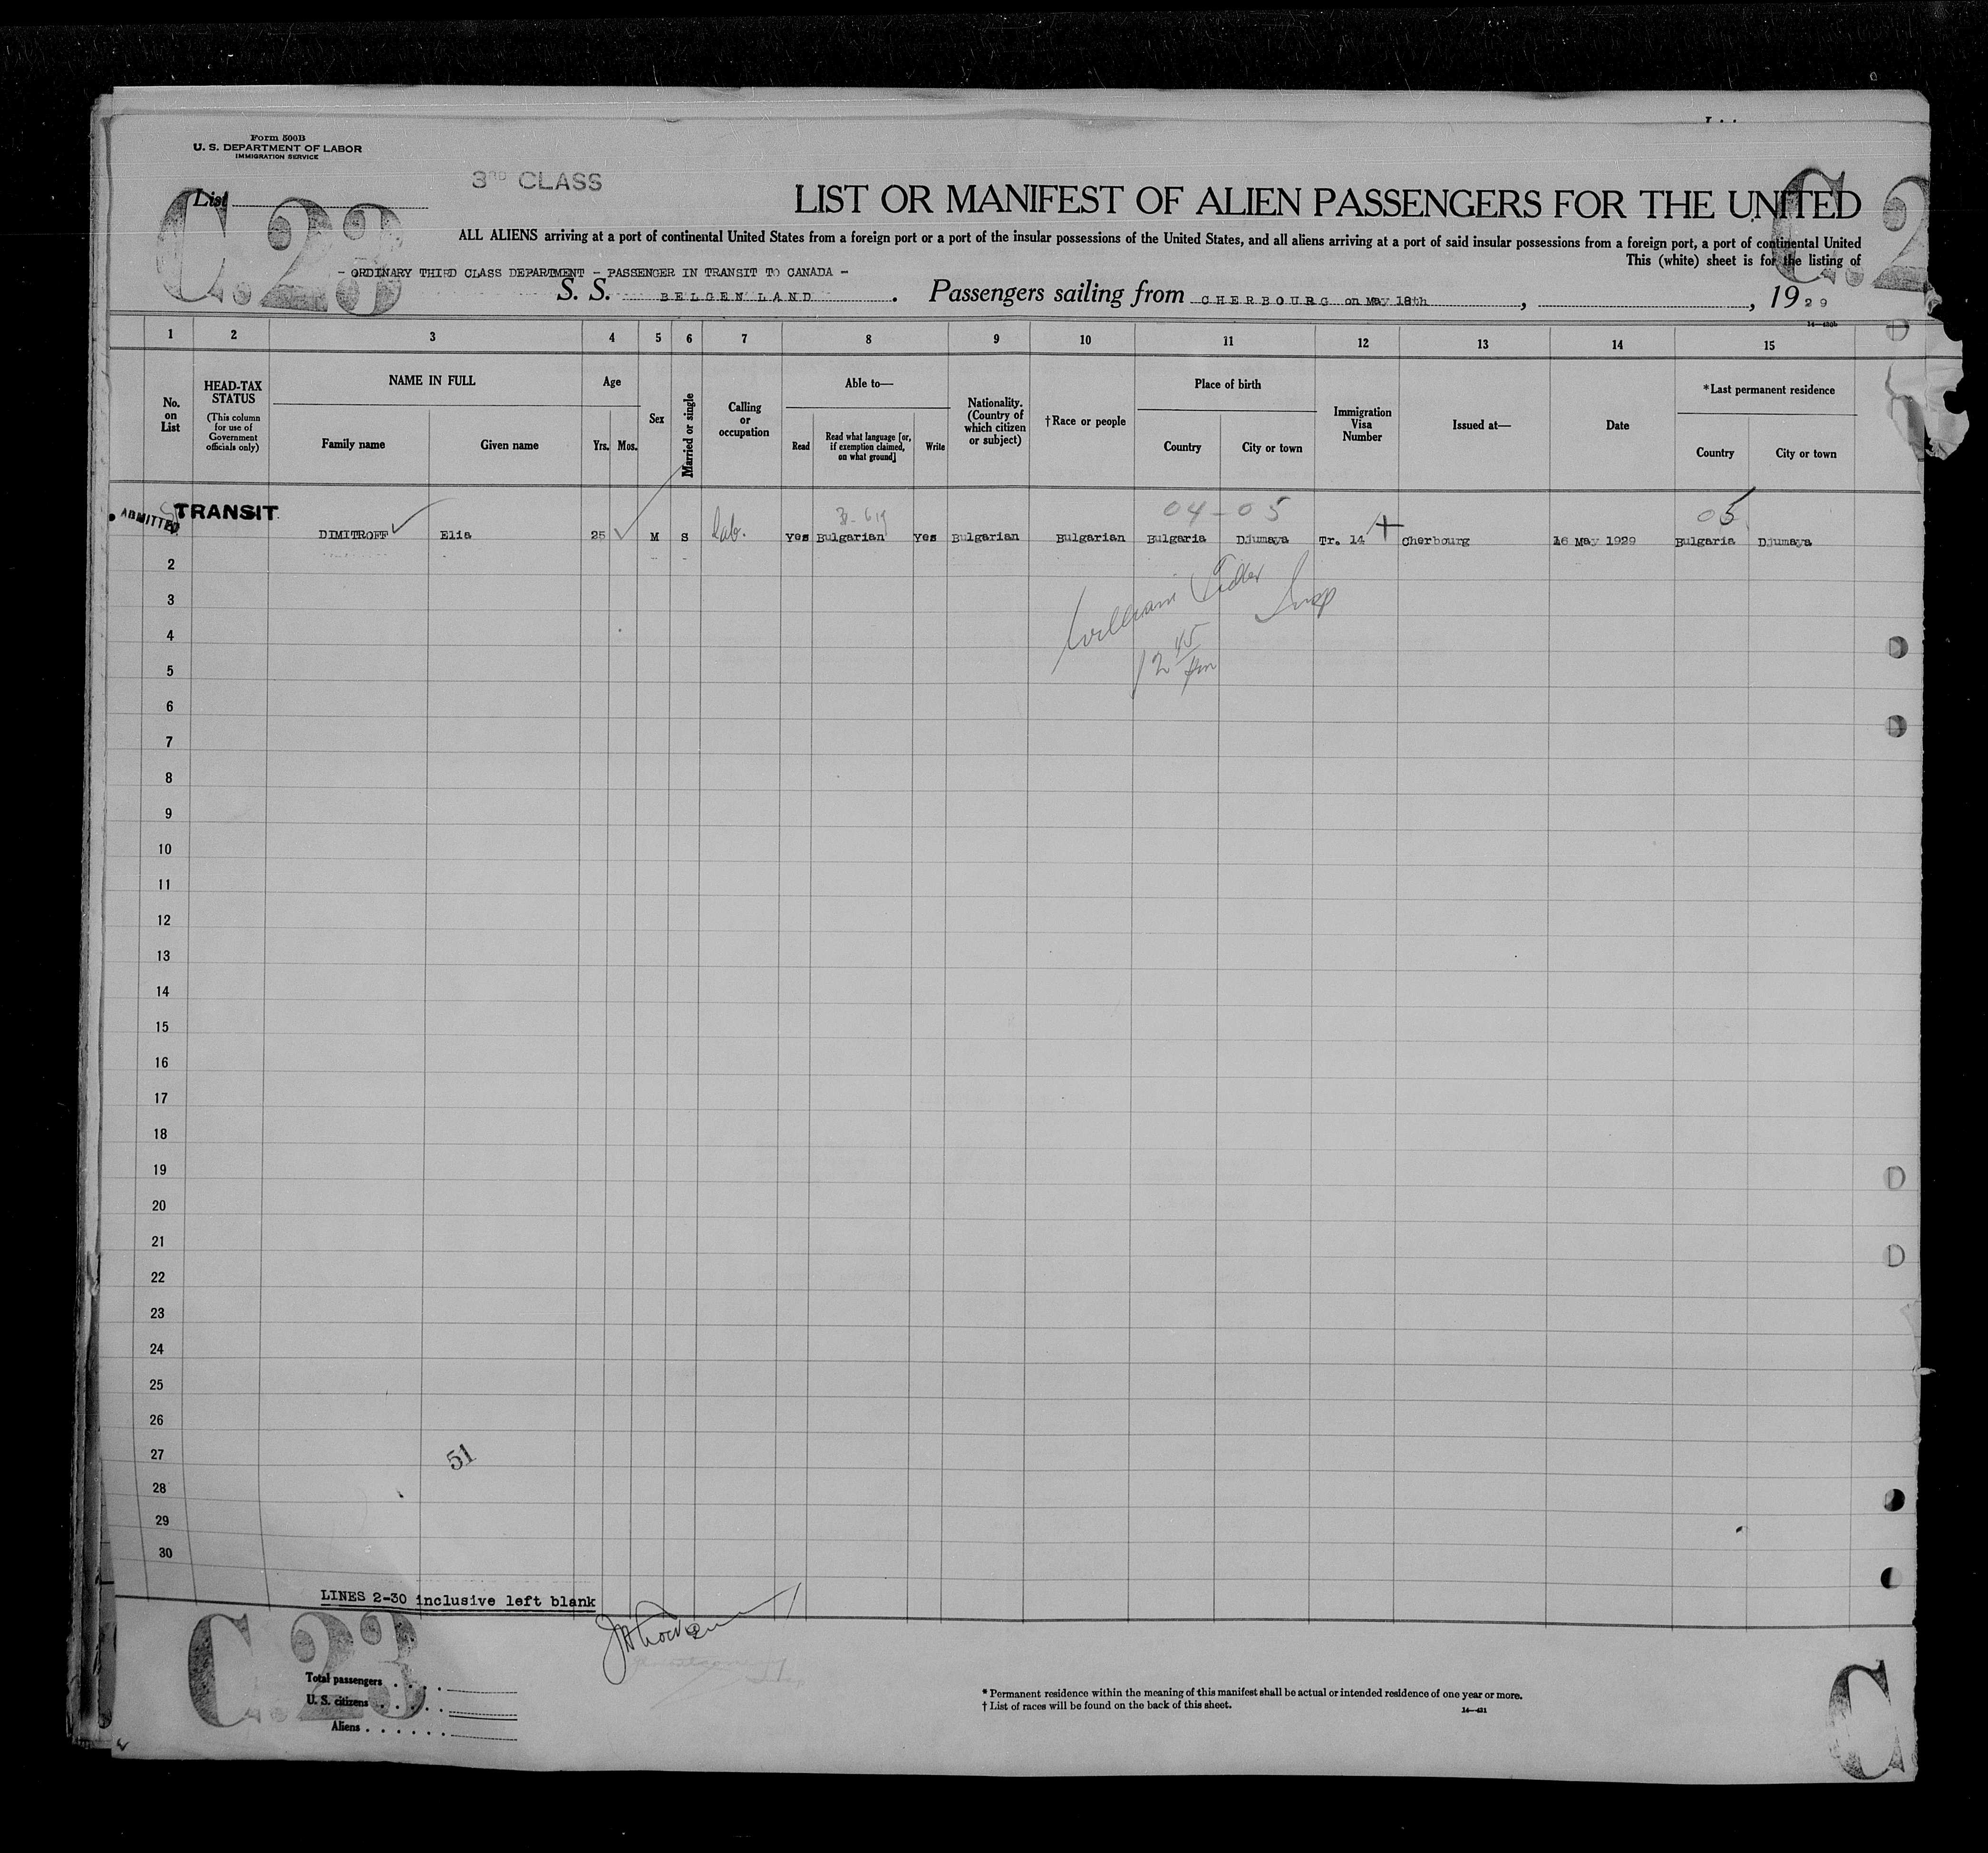 Form 500B
U. S. DEPARTMENT OF LABOR
IMMIGRATION SERVICE
3RD CLASS
List
C.23
C.2
LIST OR MANIFEST OF ALIEN PASSENGERS FOR THE UNITED
ALL ALIENS arriving at a port of continental United States from a foreign port or a port of the insular possessions of the United States, and all aliens arriving at a port of said insular possessions from a foreign port, a port of continental United
This (white) sheet is for the listing of
- ORDINARY THIRD CLASS DEPARTMENT - PASSENGER IN TRANSIT TO CANADA -
S. S. BELGENLAND. Passengers sailing from CHERBOURG on May 18th, , 1929
14—430b
1 2 3 4 5 6 7 8 9 10 11 12 13 14 15
No. on List
HEAD-TAX STATUS (This column for use of Government officials only)
NAME IN FULL
Family name
Given name
Age
Yrs. Mos.
Sex
Married or single
Calling or occupation
Able to—
Read
Read what language [or, if exemption claimed, on what ground]
Write
Nationality. (Country of which citizen or subject)
†Race or people
Place of birth
Country
City or town
Immigration Visa Number
Issued at—
Date
*Last permanent residence
Country
City or town
ADMITTED TRANSIT 04-05 05
DIMITROFF Elia 25 M S Lab. Yes Bulgarian Yes Bulgarian Bulgarian Bulgaria Djumaya Tr. 14 Cherbourg 16 May 1929 Bulgaria Djumaya
2
William Insp
3
4
12 45 pm
5
6
7
8
9
10
11
12
13
14
15
16
17
18
19
20
21
22
23
24
25
26
27
51
28
29
30
LINES 2-30 inclusive left blank
C.23
C
Total passengers . . . .
U. S. citizens . . . . .
Aliens . . . . . .
* Permanent residence within the meaning of this manifest shall be actual or intended residence of one year or more.
† List of races will be found on the back of this sheet.
14—431